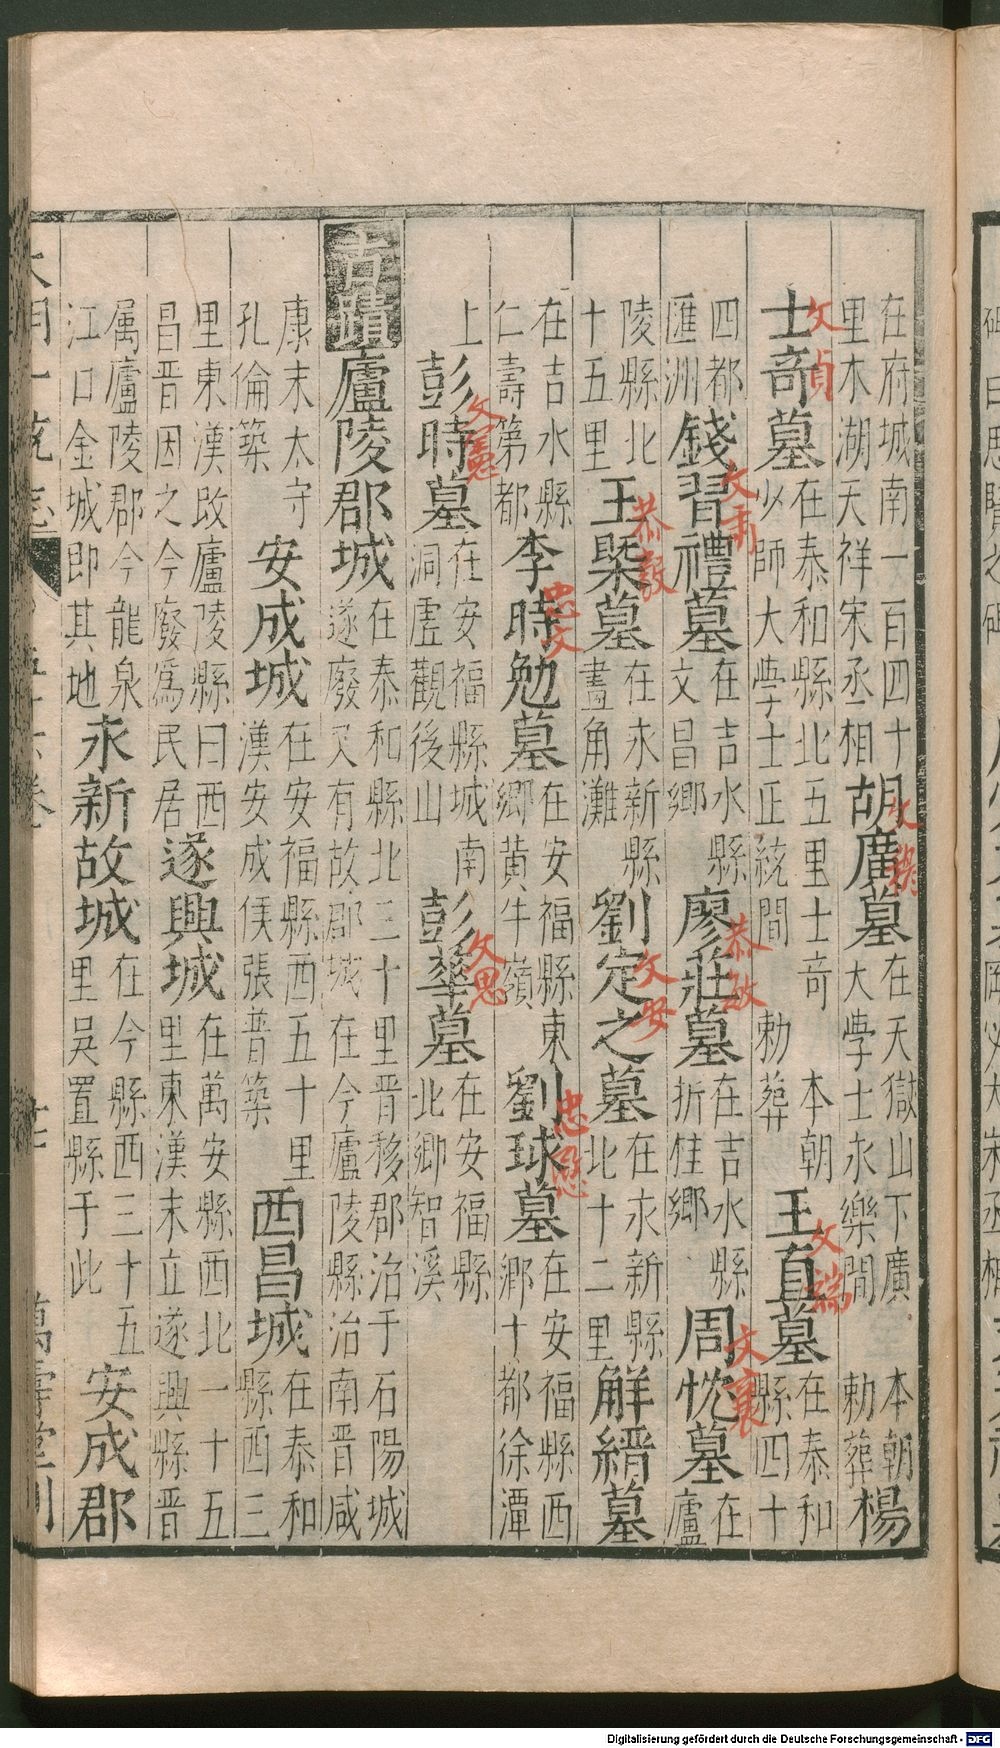 在府城南一百四十里木湖天祥宋丞相胡廣墓在天獄山下廣本朝大學士永樂間勅葬楊
文穆
士奇墓在泰和縣北五里士奇本朝少師大學士正統間勅葬王直墓在泰和縣四十
文貞
文端
四都匯洲錢習禮墓在吉水縣文昌鄉廖莊墓在吉水縣折桂鄉周忱墓在廬
文肅
恭敏
文襄
陵縣北十五里王㮣墓在永新縣畫角灘劉定之墓在永新縣北十二里解縉墓
恭毅
文安
在吉水縣仁壽第都李時勉墓在安福縣東鄉黄牛嶺劉球墓在安福縣西鄉十都徐潭
忠文
忠愍
上彭時墓在安福縣城南洞虚觀後山彭華墓在安福縣北鄉智溪
文憲
文思
古蹟廬陵郡城在泰和縣北三十里晋移郡治于石陽城遂廢又有故郡城在今廬陵縣治南晋咸
康末太守孔倫築安成城在安福縣西五十里漢安成侯張普築西昌城在泰和縣西三
里東漢改廬陵縣曰西昌晋因之今廢爲民居遂興城在萬安縣西北一十五里東漢末立遂興縣晋
属廬陵郡今龍泉江口金城即其地永新故城在今縣西三十五里吳置縣于此安成郡
大明一統志
萬壽堂刊
Digitalisierung gefördert durch die Deutsche Forschungsgemeinschaft - DFG